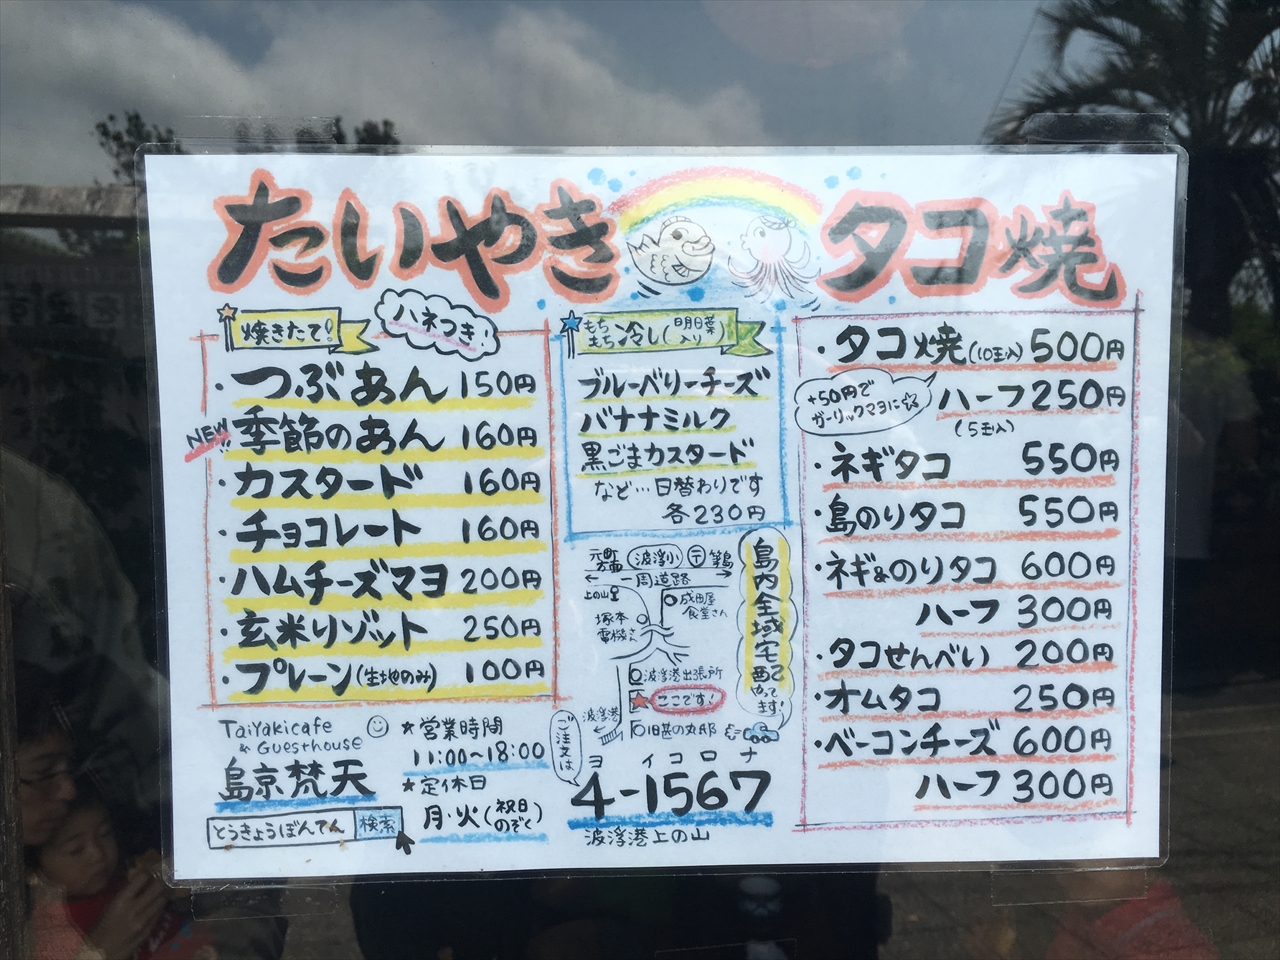 たいやき タコ焼
焼きたて!
ハネつき!
・つぶあん 150円
NEW!!
・季節のあん 160円
・カスタード 160円
・チョコレート 160円
・ハムチーズマヨ 200円
・玄米リゾット 250円
・プレーン(生地のみ) 100円
もちもち冷し(明日葉入り)
ブルーベリーチーズ
バナナミルク
黒ごまカスタード
など…日替わりです
各230円
・タコ焼(10玉入) 500円
+50円で
ガーリックマヨに☆
ハーフ250円
(5玉入)
・ネギタコ 550円
・島のりタコ 550円
・ネギ&のりタコ 600円
ハーフ 300円
・タコせんべい 200円
・オムタコ 250円
・ベーコンチーズ 600円
ハーフ 300円
元町方面
波浮小
〒
筆島
一周道路
上の山
成田屋
食堂さん
塚本
電機さん
波浮港出張所
ここです!
波浮港
旧甚の丸邸
島内全域宅配やってます!
TaiyakiCafe
& Guesthouse
島京梵天
とうきょうぼんてん 検索
★営業時間
11:00~18:00
★定休日
月・火(祝日のぞく)
ご注文は
ヨ イコロナ
4-1567
波浮港上の山